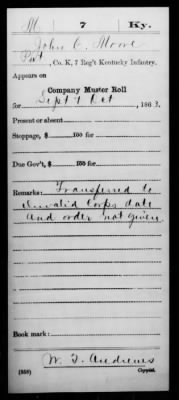 M 7 Ky.
John C. Moore
Pvt, Co. K, 7 Reg't Kentucky Infantry.
Appears on
Company Muster Roll
for Sept & Oct, 1863.
Present or absent
Stoppage, $ 100 for
Due Gov't, $ 100 for
Remarks: Transferred to
Invalid Corps date
and order not given
Book mark:
W. T. Andrews
(358) Copyist.